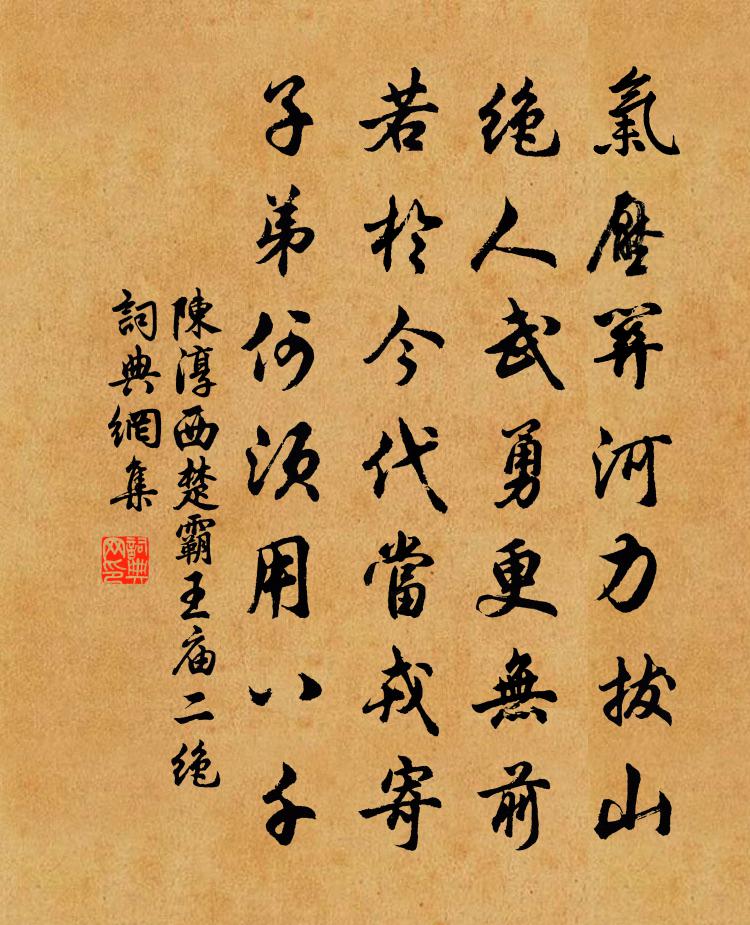 氣壓羿河力拔山
绝人武勇更無前
若於今代當戎寄
子弟何須用八千
陳淳西楚霸王庙二绝
詞典網集
詞典
网印